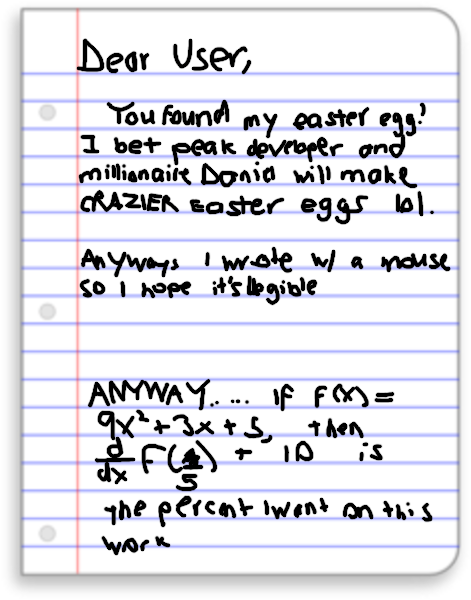 Dear User,
You found my easter egg!
I bet peak developer and
millionaire Danid will make
CRAZIER Easter eggs lol.
Anyways I wrote w/ a mouse
so I hope it's legible
ANYWAY..... if F(x)=
9x²+3x+5, then
d/dx F( /5) + 10 is
the percent I want on this
work